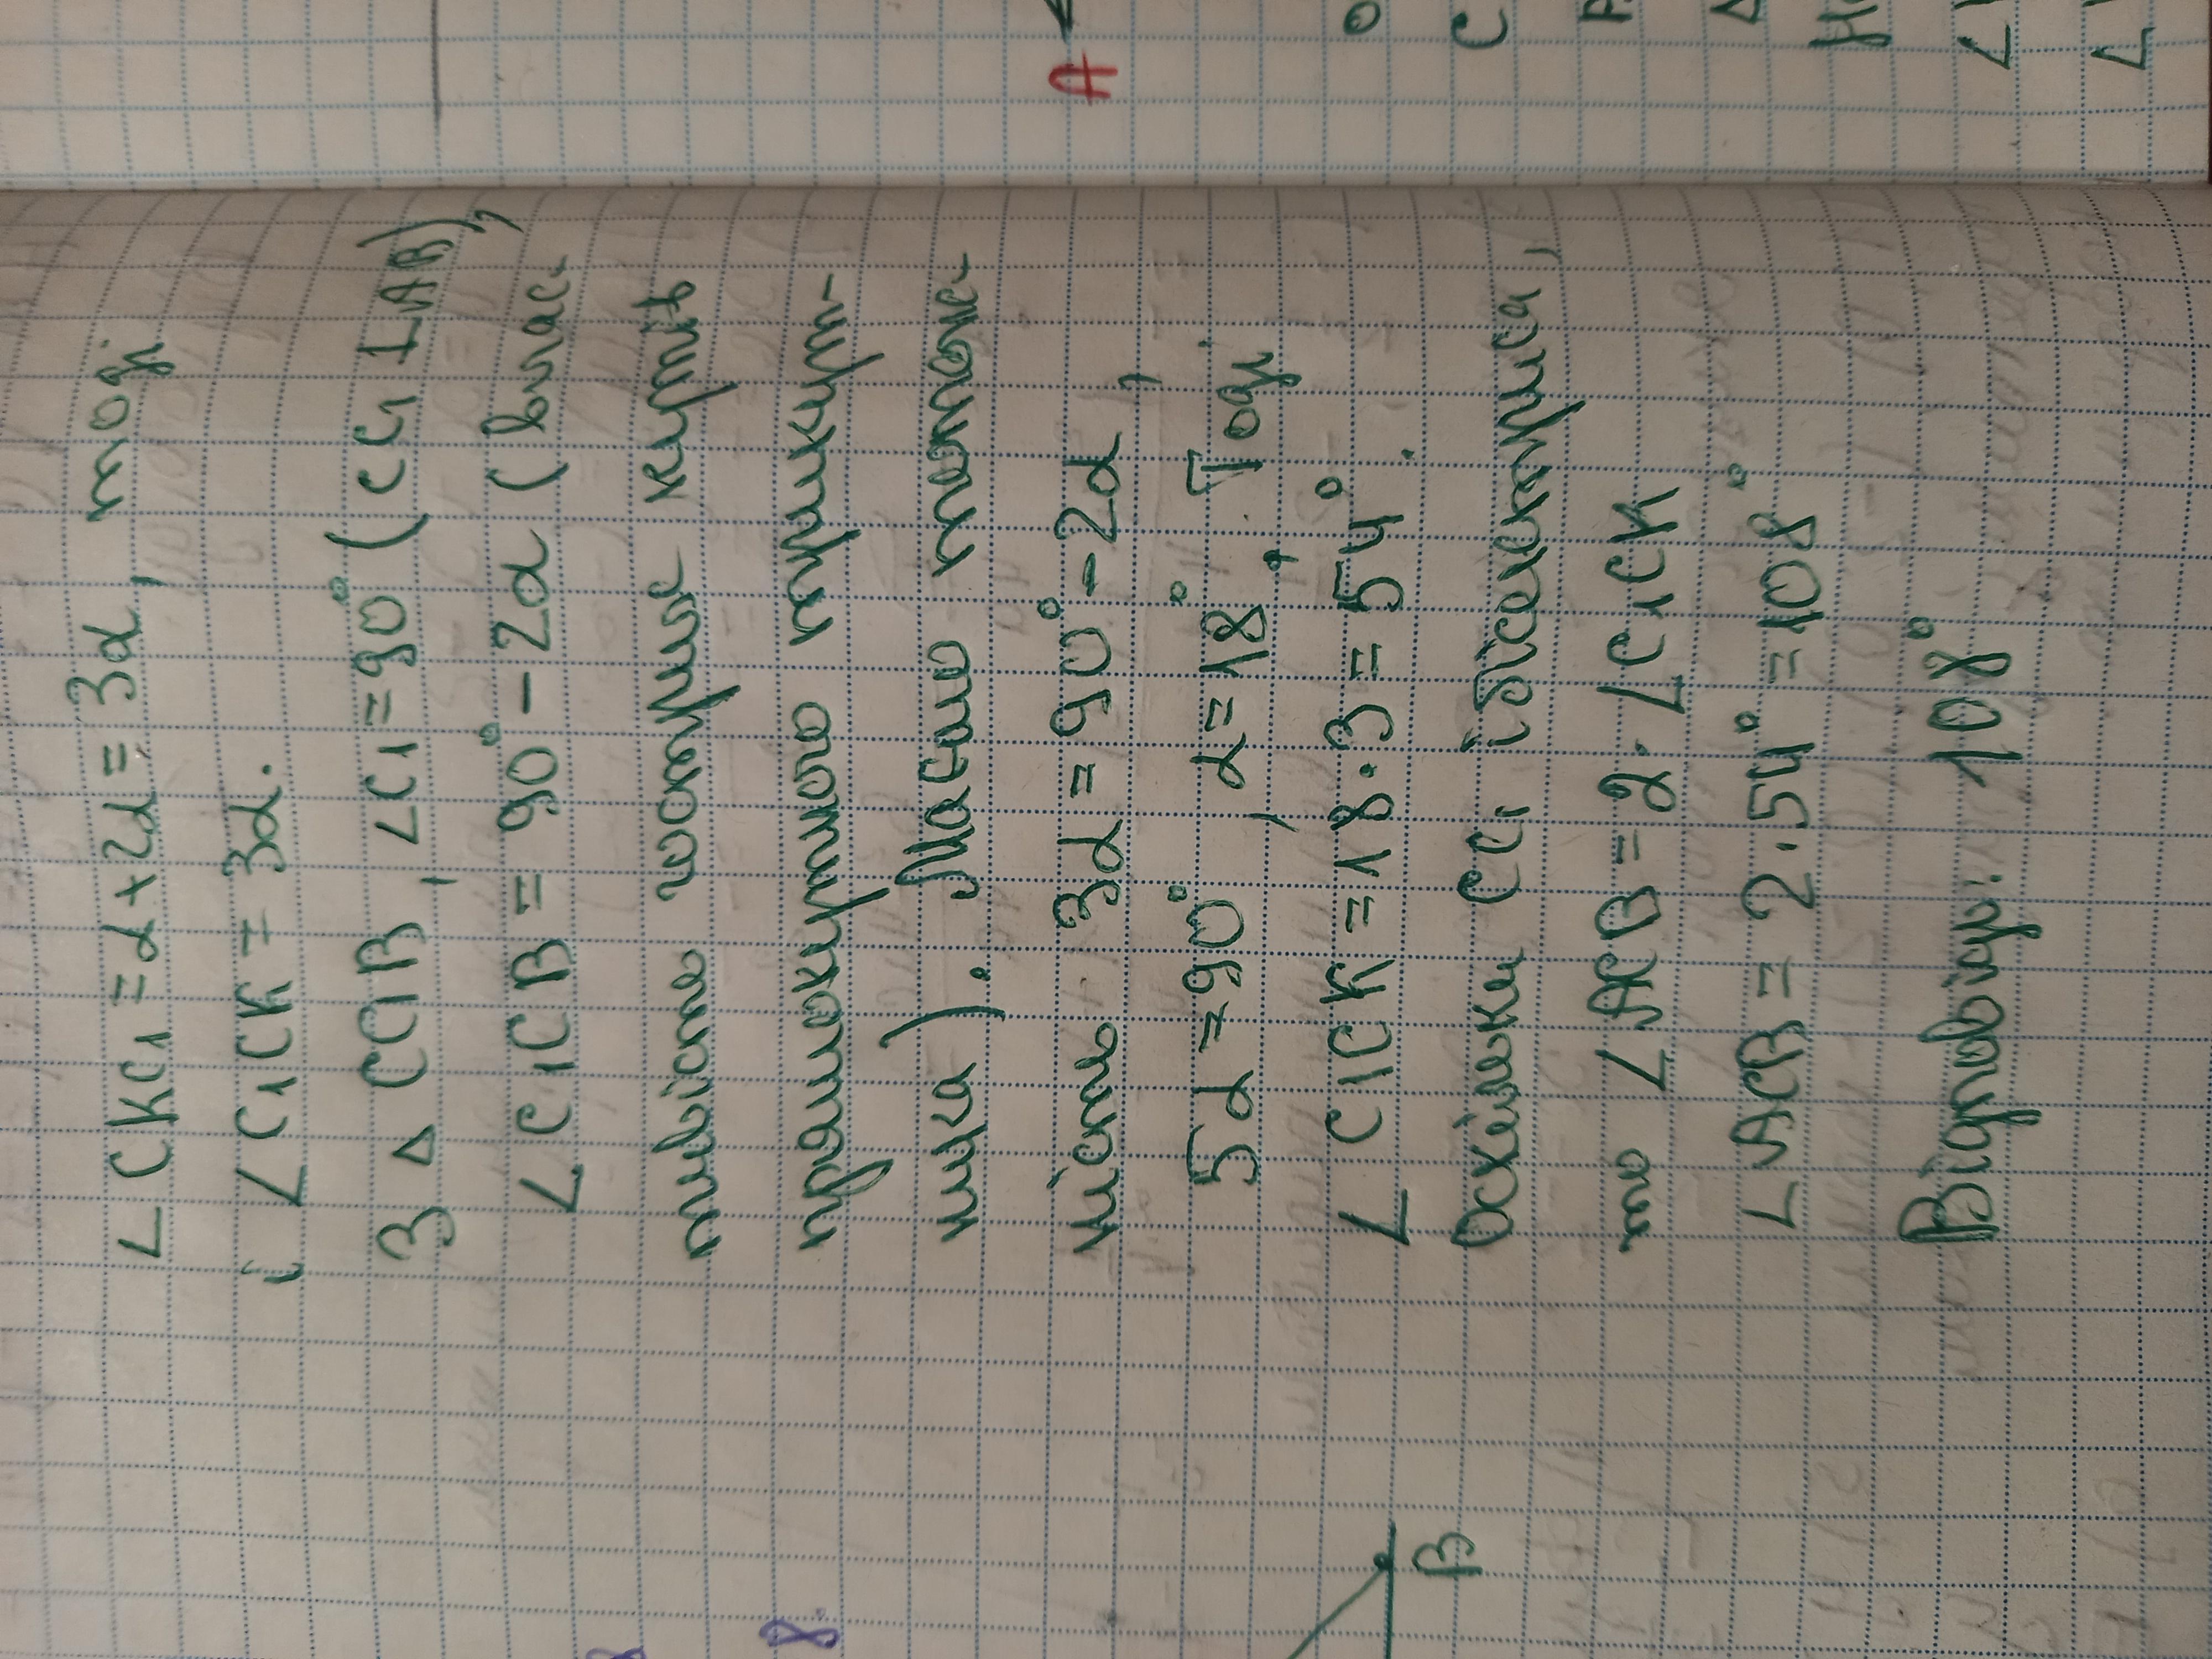 ∠CKC₁ = α + 2α = 3α, тоді
і ∠C₁CK = 3α.
З △ CC₁B, ∠C₁ = 90° (CC₁ ⊥ AB),
∠C₁CB = 90° - 2α (влас-
тивість гострих кутів
прямокутного трикут-
ника). Маємо тотожс-
ність 3α = 90° - 2α,
5α = 90°, α = 18°. Тоді
∠C₁CK = 18 · 3 = 54°.
Оскільки CC₁ бісектриса,
то ∠ACB = 2 · ∠C₁CK
∠ACB = 2 · 54° = 108°
Відповідь: 108°
B
8
A